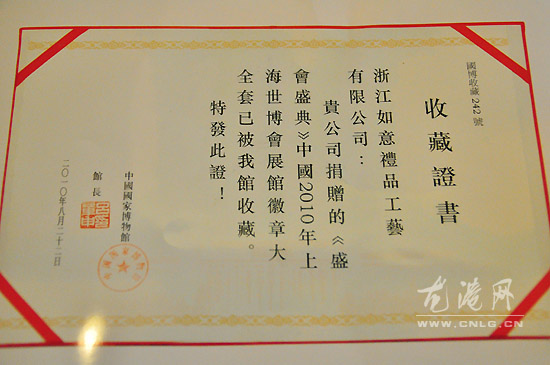 國博收藏242號
收藏證書
浙江如意禮品工藝
有限公司：
貴公司捐贈的《盛
會盛典》中國2010年上
海世博會展館徽章大
全套已被我館收藏。
特發此證！
中國國家博物館
館長
二〇一〇年八月二十二日
龙港网
WWW.CNLG.CN